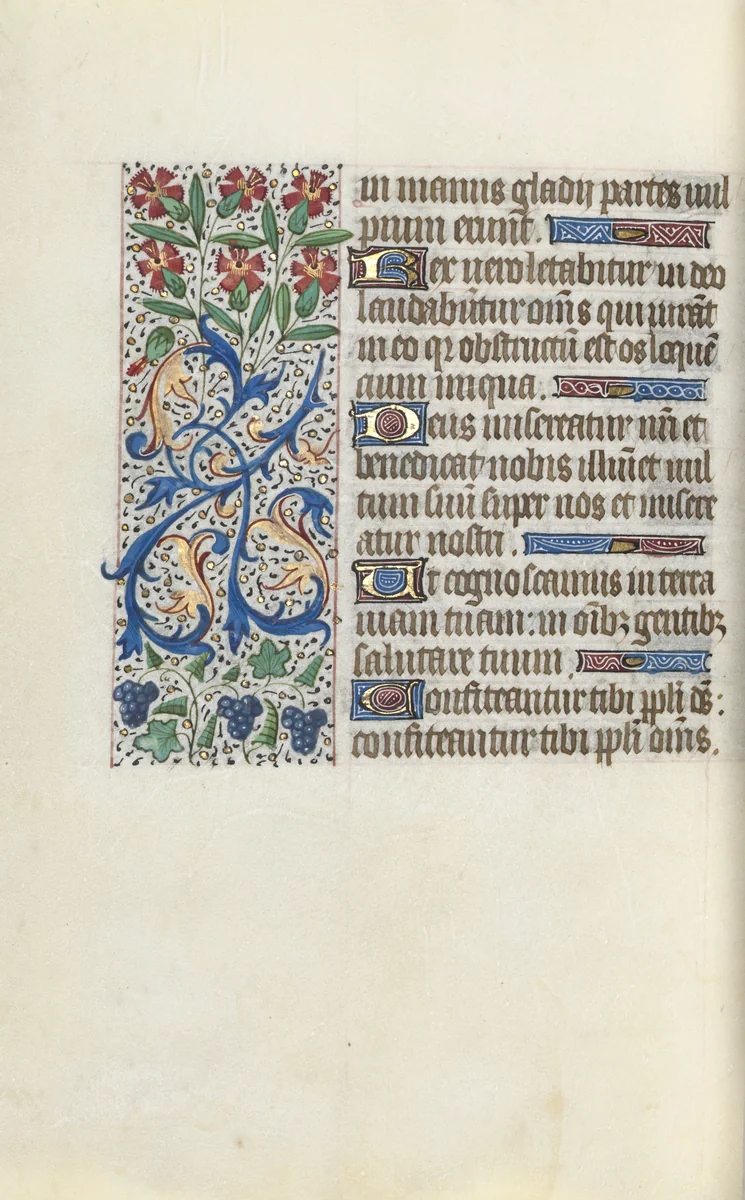 in manus gladij partes uul
pium erunt̄.
Rex uero letabitur in deo
laudabūtur om̄s qui iurāt
in eo qꝛ obstructū est os loquē
cium iniqua.
Deus misereatur nr̄i et
benedicat nobis illūet uul
tum suū super nos et misere
atur nostri.
Ut cognoscamus in terra
uiam tuam: in oībꝫ gentibꝫ
salutare tuum.
Confiteantur tibi ppl̄i ds̄:
confiteantur tibi ppl̄i om̄s.